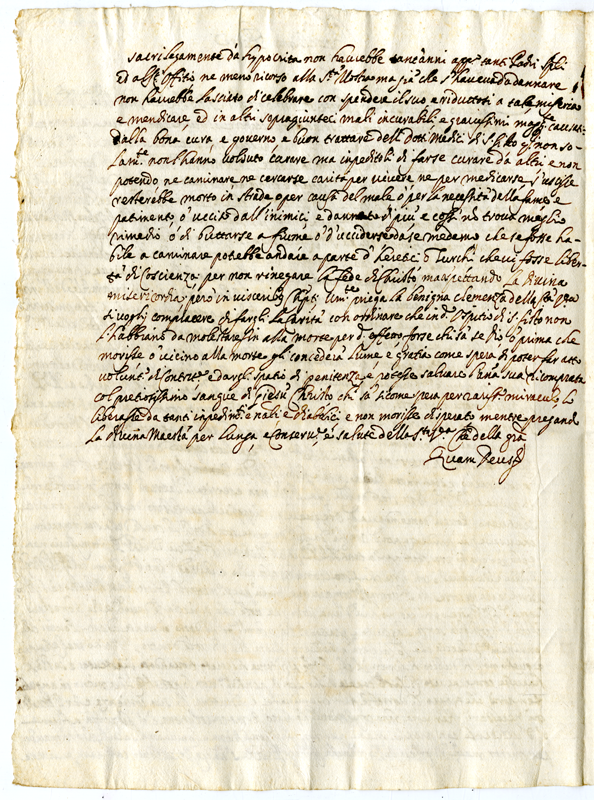 sacrilegamente da hypocrita non havrebbe tant'anni app.º tanti
ed al S.to Offitio ne meno ricorso alla S.tà Vostra ma già che s'haveva da dannare
non havrebbe lasciato di celebrare con spendere il suo e ridottosi a tale miseria
e mendicare ed in altri sopragiunteci mali incurabili e gravissimi causati
dalla bona cura e governo e buon trattare delli dotti Medici di non so-
lam.te non l'hanno voluto curare ma inpeditoli di farse curare da altri e non
potendo ne caminare ne cercarse carità per vivere ne per medicarse s'uscisse
resterebbe morto in strada o per causa del male o per la necessità della fame e
patimento o ucciso dall'inimici e dannato di più e così no trova meglio
rimedio o di buttarse a fiume o d'uccidersi da se medemo che se fosse ha-
bile a caminare potrebbe andare a parte d'heretici o Turchi che vi fosse liber-
tà di coscienza per non rinegare la fede di Christo ma aspettando la divina
misericordia però in visceribus Chri.pti um.te priega la benigna clemenza della S.tà V.ra
si vogli compiacere di fargli la carità con ordinare che in d.º Ospitio di S. Sisto non
l'habbiano da molestare fin alla morte per d. effetto forse chi sà se Dio o prima che
morisse o vicino alla morte gli concederà lume e gratia come spera di poter far atto
volunt.º di contrit.e e darli spatio di penitenza e potesse salvare l'anima sua ricomprata
col pretiosissimo sangue di Giesù Christo chi sà sicome spera per miraculo lo
liberasse da tanti inpedim.ti e mali e diabolici e non morisse disperato mentre pregando
la divina Maestà per lunga e conserv.ne e salute della S.tà V.ra della gra.
Quam Deus